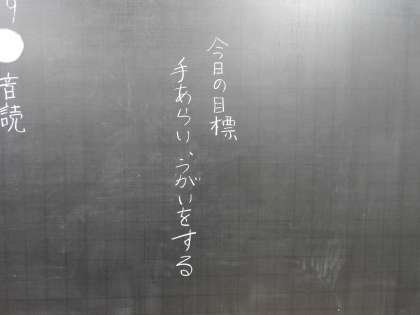 今日の目標
手あらい、うがいをする
音読